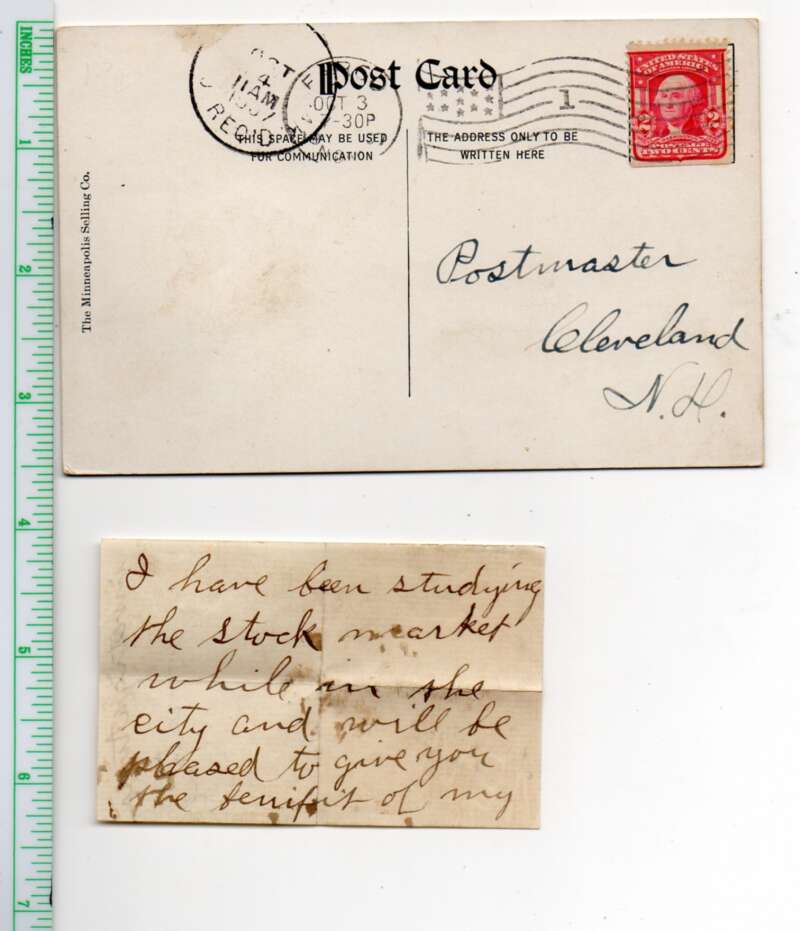 INCHES
1
2
3
4
5
6
7
Post Card
OCT
4
11 AM
1907
REC'D
OCT 3
-30P
1
UNITED STATES
OF AMERICA
2 2
POSTAGE
TWO CENTS
THIS SPACE MAY BE USED
FOR COMMUNICATION
THE ADDRESS ONLY TO BE
WRITTEN HERE
The Minneapolis Selling Co.
Postmaster
Cleveland
N.H.
I have been studying
the stock market
while in the
city and will be
pleased to give you
the benifit of my